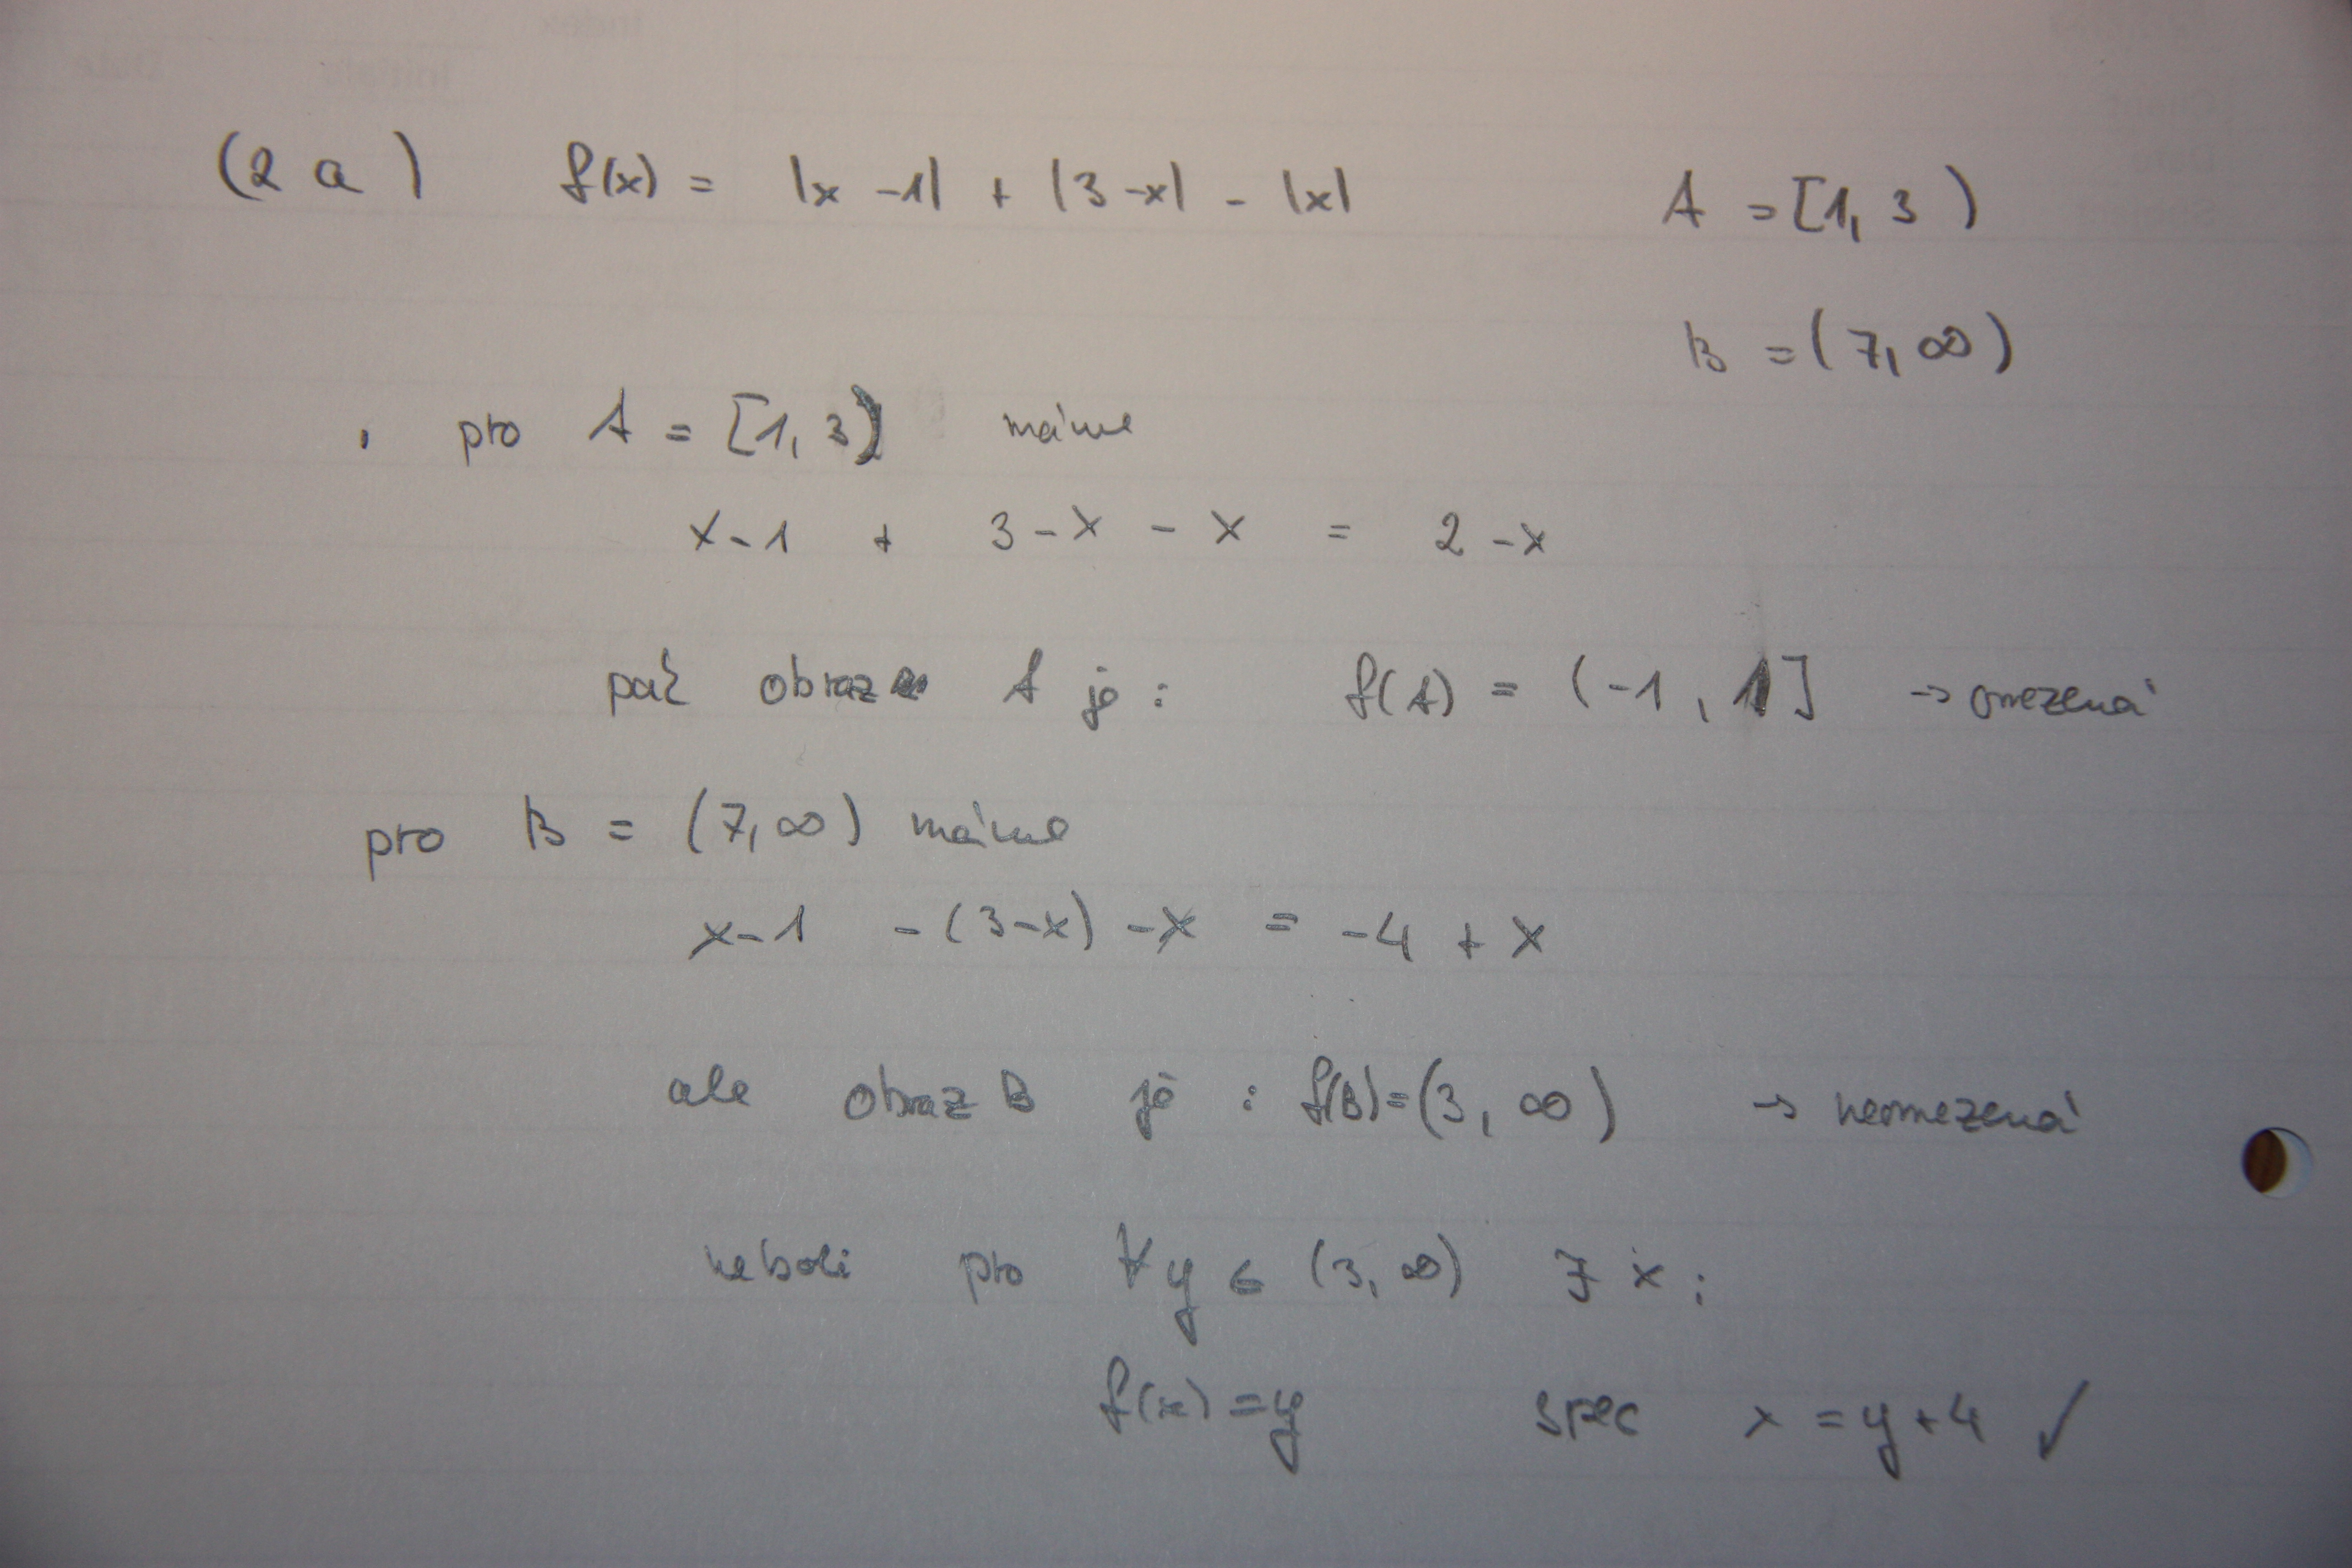 (2a) f(x) = |x-1| + |3-x| - |x| A = [1, 3)
B = (7, ∞)
. pro A = [1, 3) máme
x-1 + 3-x - x = 2-x
pak obraz A je : f(A) = (-1, 1] → omezená
pro B = (7, ∞) máme
x-1 -(3-x) -x = -4 + x
ale obraz B je : f(B)=(3, ∞) → neomezená
neboli pro ∀y ∈ (3, ∞) ∃ x :
f(x) = y spec x = y+4 ✓